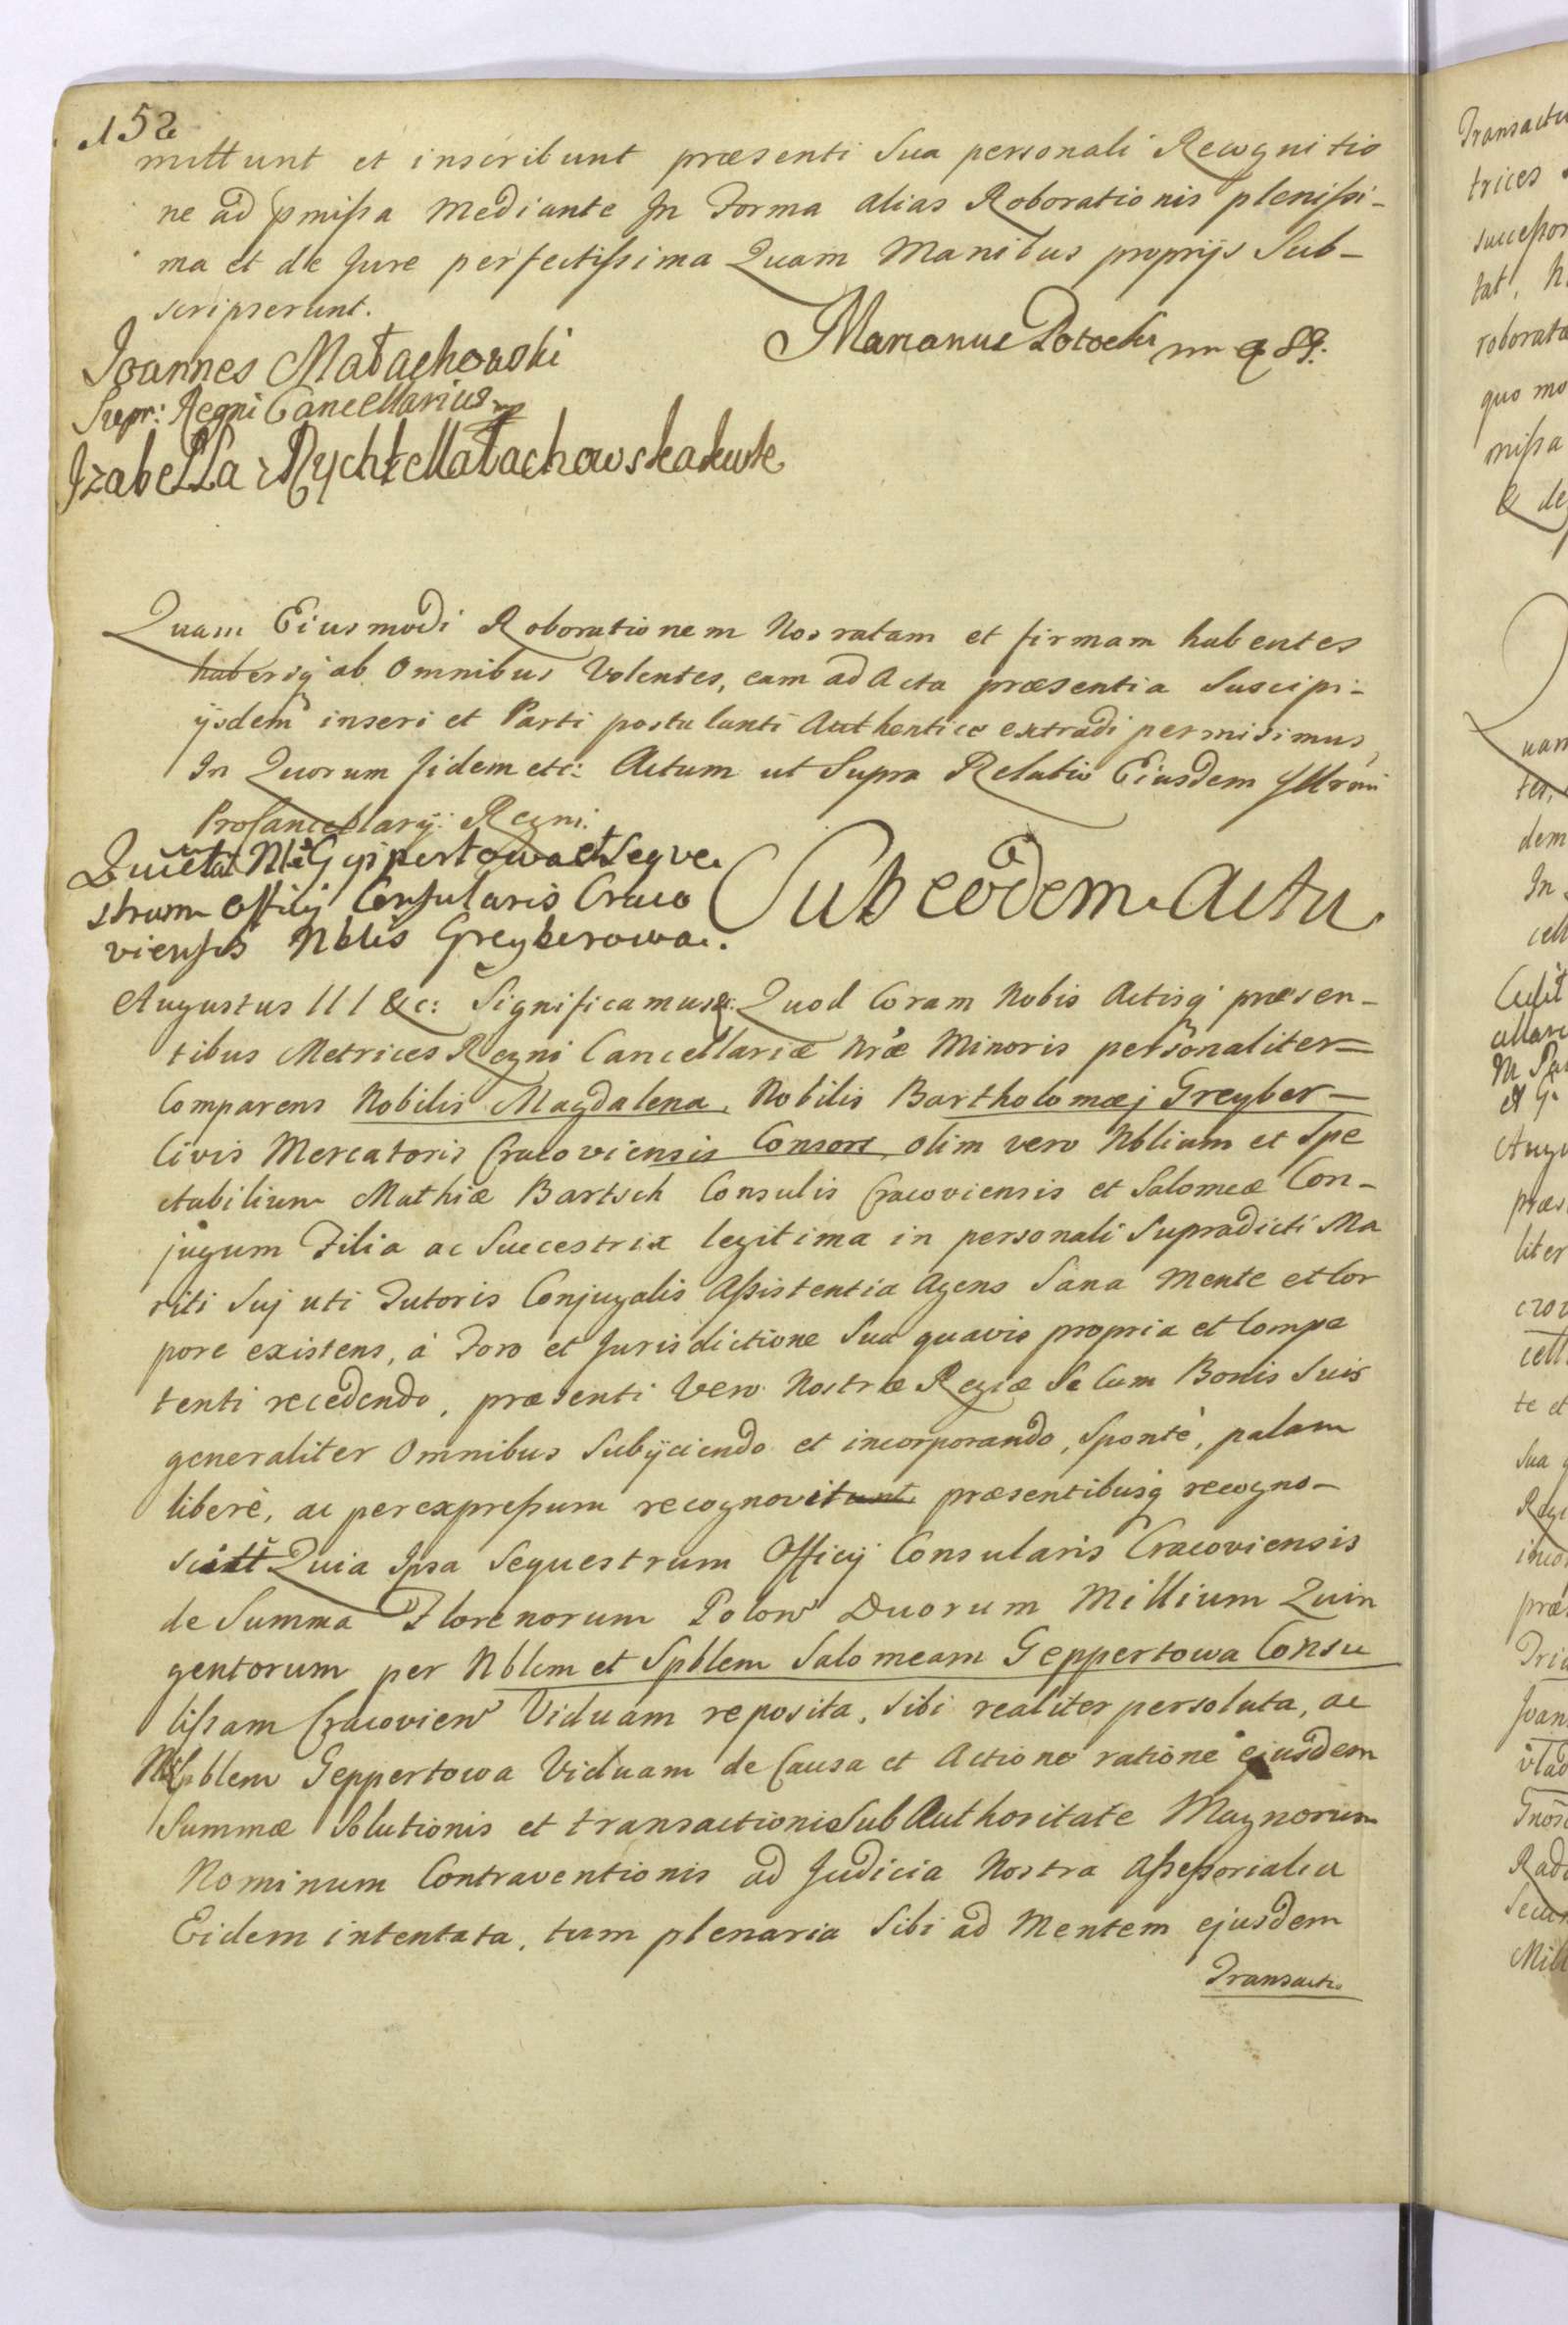 152
mittunt et inscribunt præsenti Sua personali Recognitio
ne ad pmißa Mediante In Forma alias Roborationis plenißi-
ma et de Jure perfectißima Quam Manibus proprijs Sub-
scripserunt.
Joannes Małachowski
Marianus Potocki
Supr: Regni Cancellarius
Izabella Małachowska
Quam Eiusmodi Roborationem Nos ratam et firmam habentes
haberiq; ab Omnibus Volentes, eam ad Acta præsentia Suscipi-
ijsdemq inseri et Parti postulanti Authentice extradi permisimus,
In Quorum fidem etc: Actum ut Supra Relatio Eiusdem Illrmi
ProCancellarij: Regni.
Quietat Nlis Geppertowa et Seque
strum Officij Consularis Craco
viensis Nblis Greyberowa.
Sub eodem Actu
Augustus III &c: Significamus &: Quod Coram Nobis Actisq; præsen-
tibus Metrices Regni Cancellariæ Nræ Minoris personaliter=
Comparens Nobilis Magdalena, Nobilis Bartholomæj Greyber-
Civis Mercatoris Cracoviensis Consors, olim vero Nblium et Spe
ctabilium Mathiæ Bartsch Consulis Cracoviensis et Salomeæ Con-
jugum Filia ac Succestrix legitima in personali Supradicti Ma
riti Suj uti Tutoris Conjugalis Aßistentia Agens Sana Mente et Cor
pore existens, à Foro et Jurisdictione Sua quavis propria et Compe
tenti recedendo, præsenti Vero Nostræ Regiæ Se Cum Bonis Suis
generaliter Omnibus Subijciendo et incorporando, Sponte, palam
liberè, ac per expreßum recognovit præsentibusq; recogno-
scit Quia Ipsa Sequestrum Officij Consularis Cracoviensis
de Summa Florenorum Polon Duorum Millium Quin
gentorum per Nblem et Spblem Salomeam Geppertowa Consu
lißam Cracovien Viduam reposita, Sibi realiter persoluta, ac
Spblem Geppertowa Viduam de Causa et Actione ratione ejusdem
Summæ Solutionis et transactionis Sub Authoritate Magnorum
Nominum Contraventionis ad Judicia Nostra Aßeßorialia
Eidem intentata, tum plenaria Sibi ad Mentem ejusdem
Transactio